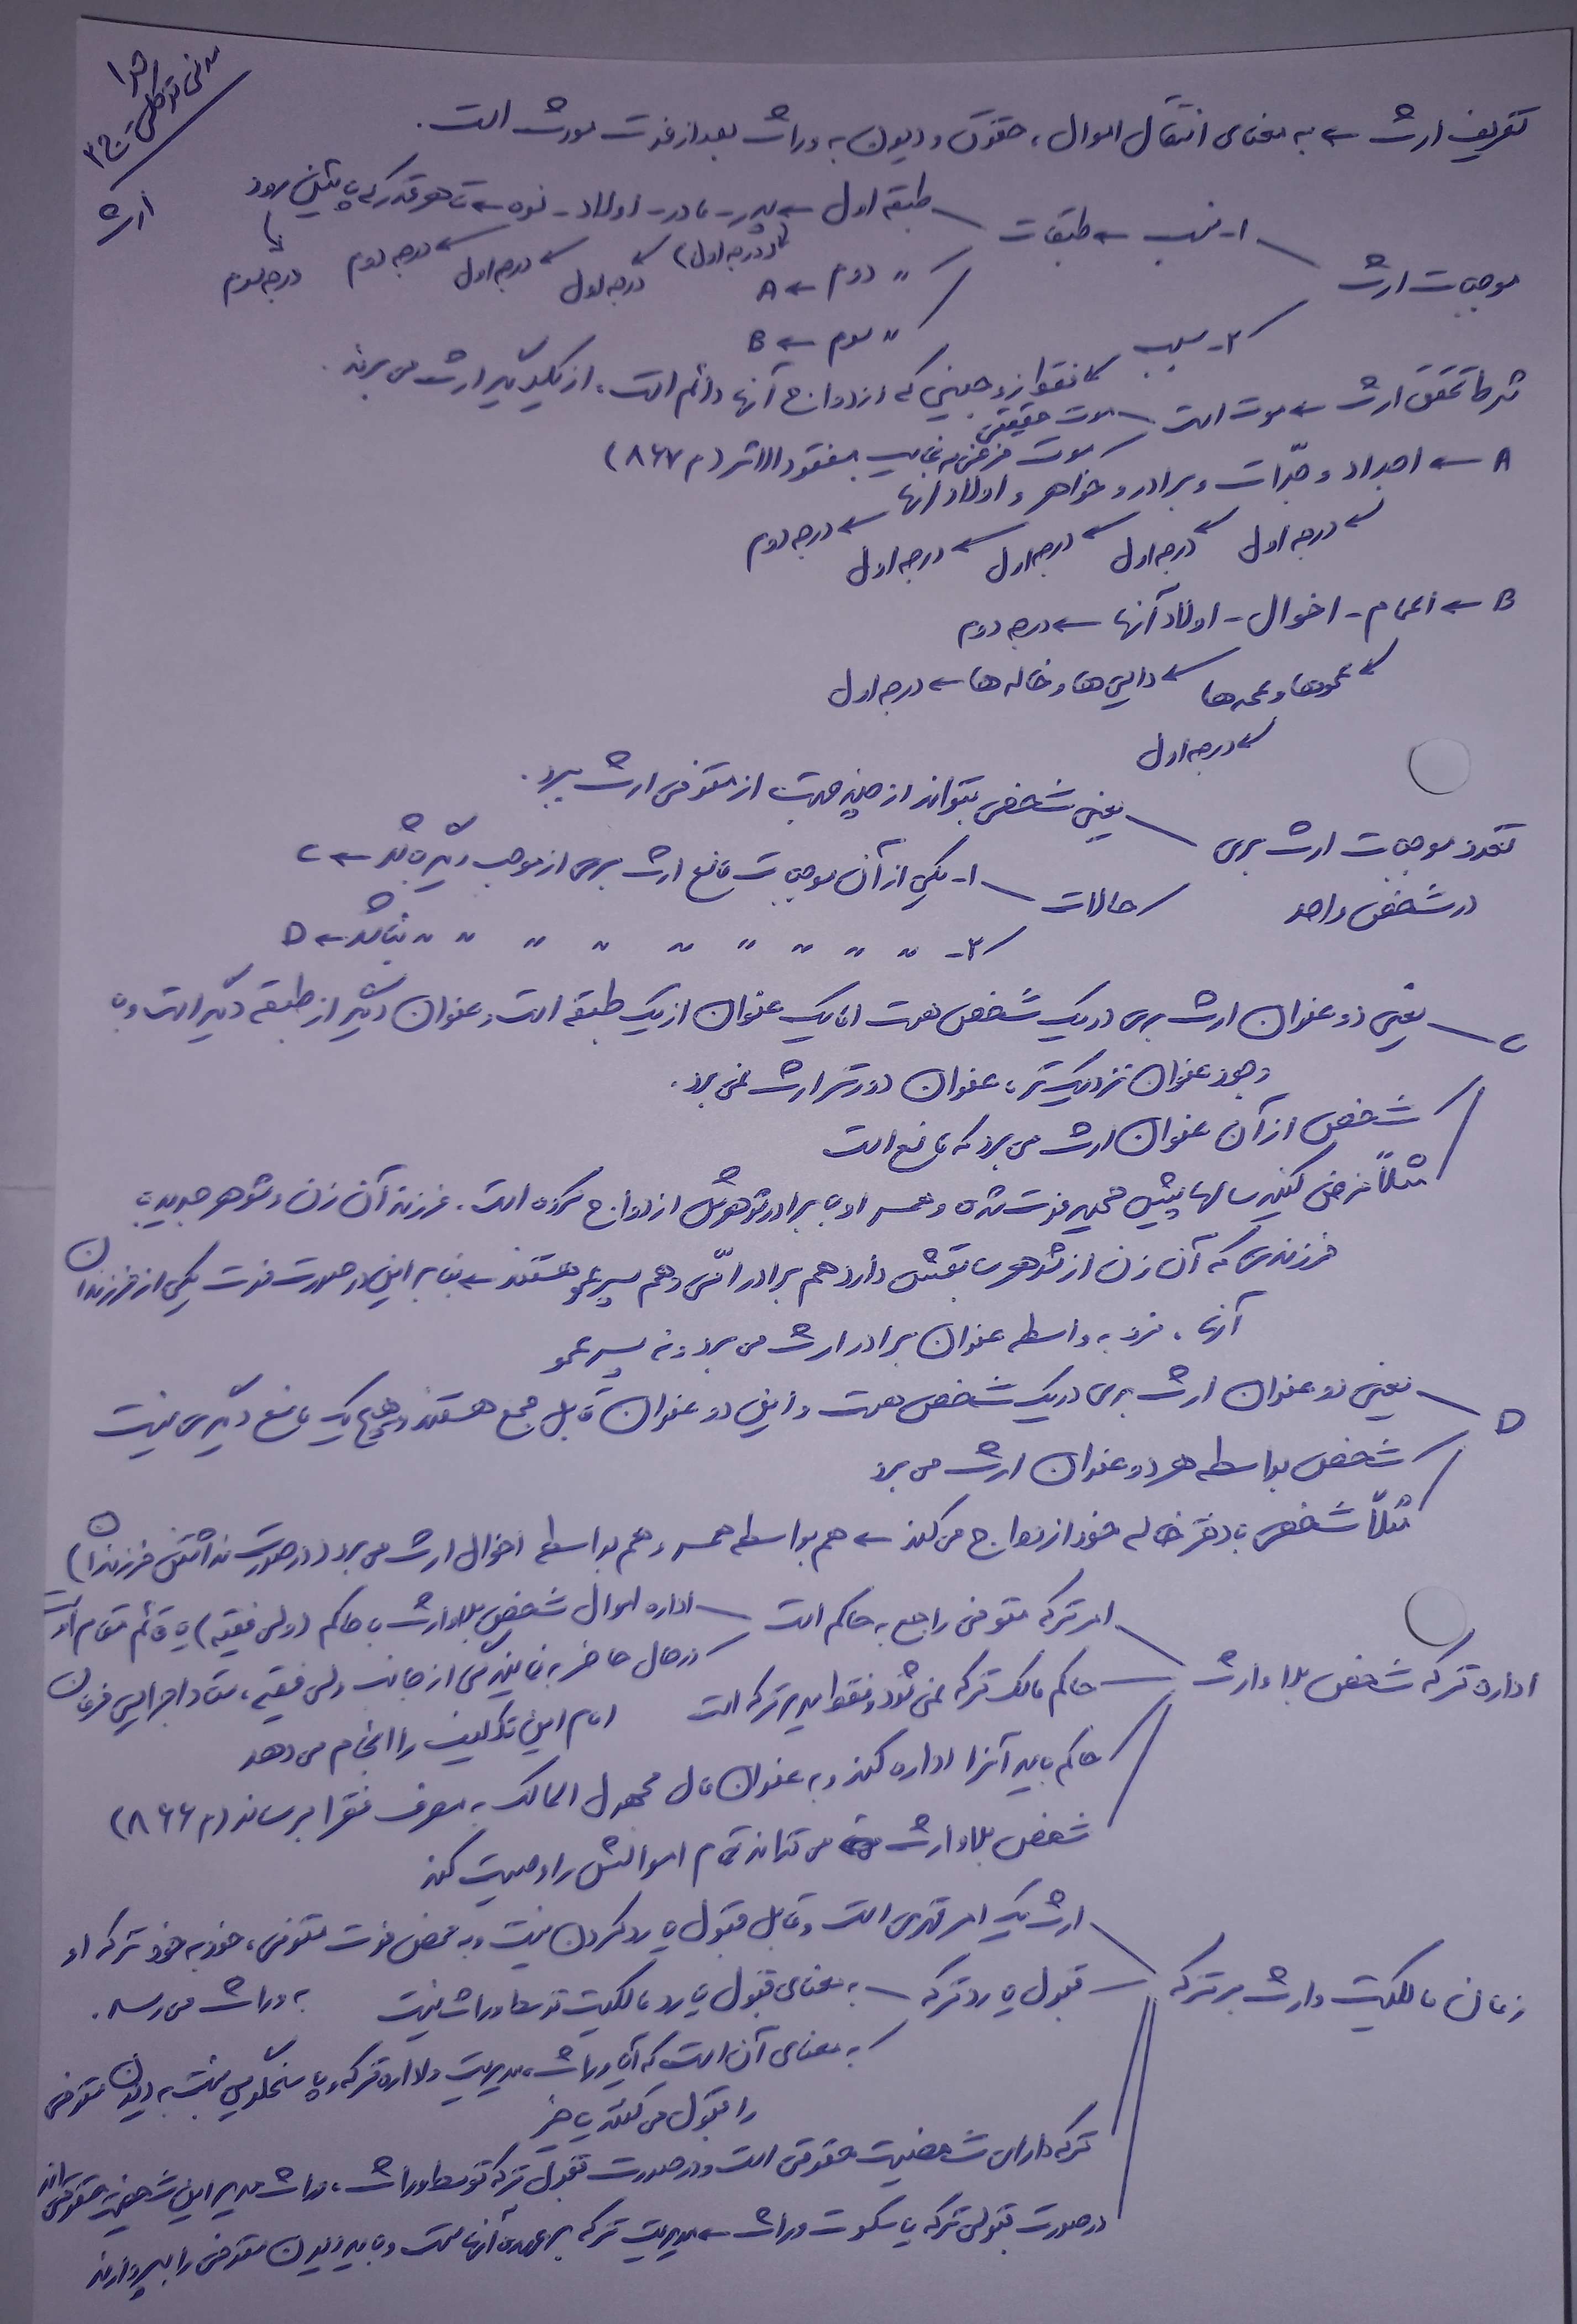 تعریف ارث ← به معنای انتقال اموال، حقوق و دیون به وراث بعد از فوت مورث است.
ارث
موجبات ارث
۱- نسب ← طبقات
طبقه اول ← پدر - مادر - اولاد - نوه ← تا هر قدر که پایین رود
(درجه اول) درجه اول درجه اول درجه دوم درجه سوم
〃 دوم ← A
〃 سوم ← B
۲- سبب
فقط زوجینی که ازدواج آنها دائم است، از یکدیگر ارث می برند.
شرط تحقق ارث ← موت است
موت حقیقی
موت فرضی ← غایب مفقود الاثر (م ۸۶۷)
A ← اجداد و جدّات و برادر و خواهر و اولاد آنها ← درجه دوم
درجه اول درجه اول درجه اول درجه اول
B ← اعمام - اخوال - اولاد آنها ← درجه دوم
عموها و عمه ها دایی ها و خاله ها ← درجه اول
درجه اول
تعدد موجبات ارث بری در شخص واحد
یعنی شخص بتواند از چند جهت از متوفی ارث ببرد.
حالات
۱- یکی از آن موجبات مانع ارث بری از موجب دیگر باشد ← C
۲- 〃 〃 〃 〃 〃 〃 〃 〃 〃 نباشد ← D
C یعنی دو عنوان ارث بری در یک شخص هست اما یک عنوان از یک طبقه است و عنوان دیگر از طبقه دیگر است و با
وجود عنوان نزدیکتر، عنوان دورتر ارث نمی برد.
شخص از آن عنوان ارث می برد که مانع است
مثلاً فرض کنید سالها پیش حمید فوت شده و همسر او با برادر شوهرش ازدواج کرده است. فرزند آن زن و شوهر جدید با
فرزندی که آن زن از شوهر سابقش دارد هم برادر امّی و هم پسر عمو هستند ← بنابراین در صورت فوت یکی از فرزندان
آنها، فرد به واسطه عنوان برادر ارث می برد و نه پسر عمو
D یعنی دو عنوان ارث بری در یک شخص هست و این دو عنوان قابل جمع هستند و هیچ یک مانع دیگری نیست
شخص بواسطه هر دو عنوان ارث می برد
مثلاً شخص با دختر خاله خود ازدواج می کند ← هم بواسطه همسر و هم بواسطه اخوال ارث می برد (در صورت نداشتن فرزندان)
اداره ترکه شخص بلاوارث
امر ترکه متوفی راجع به حاکم است
اداره اموال شخص بلاوارث با حاکم (ولی فقیه) یا قائم مقام اوست
در حال حاضر به نمایندگی از جانب ولی فقیه، ستاد اجرایی فرمان
امام این تکلیف را انجام می دهد
حاکم مالک ترکه نمی شود و فقط مدیر ترکه است
حاکم باید آنرا اداره کند و به عنوان مال مجهول المالک به مصرف فقرا برساند (م ۸۶۶)
شخص بلاوارث می تواند تمام اموالش را وصیت کند
زمان مالکیت وارث بر ترکه
ارث یک امر قهری است و قابل قبول یا رد کردن نیست و به محض فوت متوفی، خود به خود ترکه او
به وراث می رسد.
قبول یا رد ترکه
به معنای قبول یا رد مالکیت توسط وراث نیست
به معنای آن است که آیا وراث، مدیریت و اداره ترکه و پاسخگویی نسبت به دیون متوفی
را قبول می کنند یا خیر
ترکه دارای شخصیت حقوقی است و در صورت قبول ترکه توسط وراث، وراث مدیر این شخصیت حقوقی اند
در صورت قبولی ترکه یا سکوت وراث ← مدیریت ترکه بر عهده آنهاست و باید دیون متوفی را بپردازند